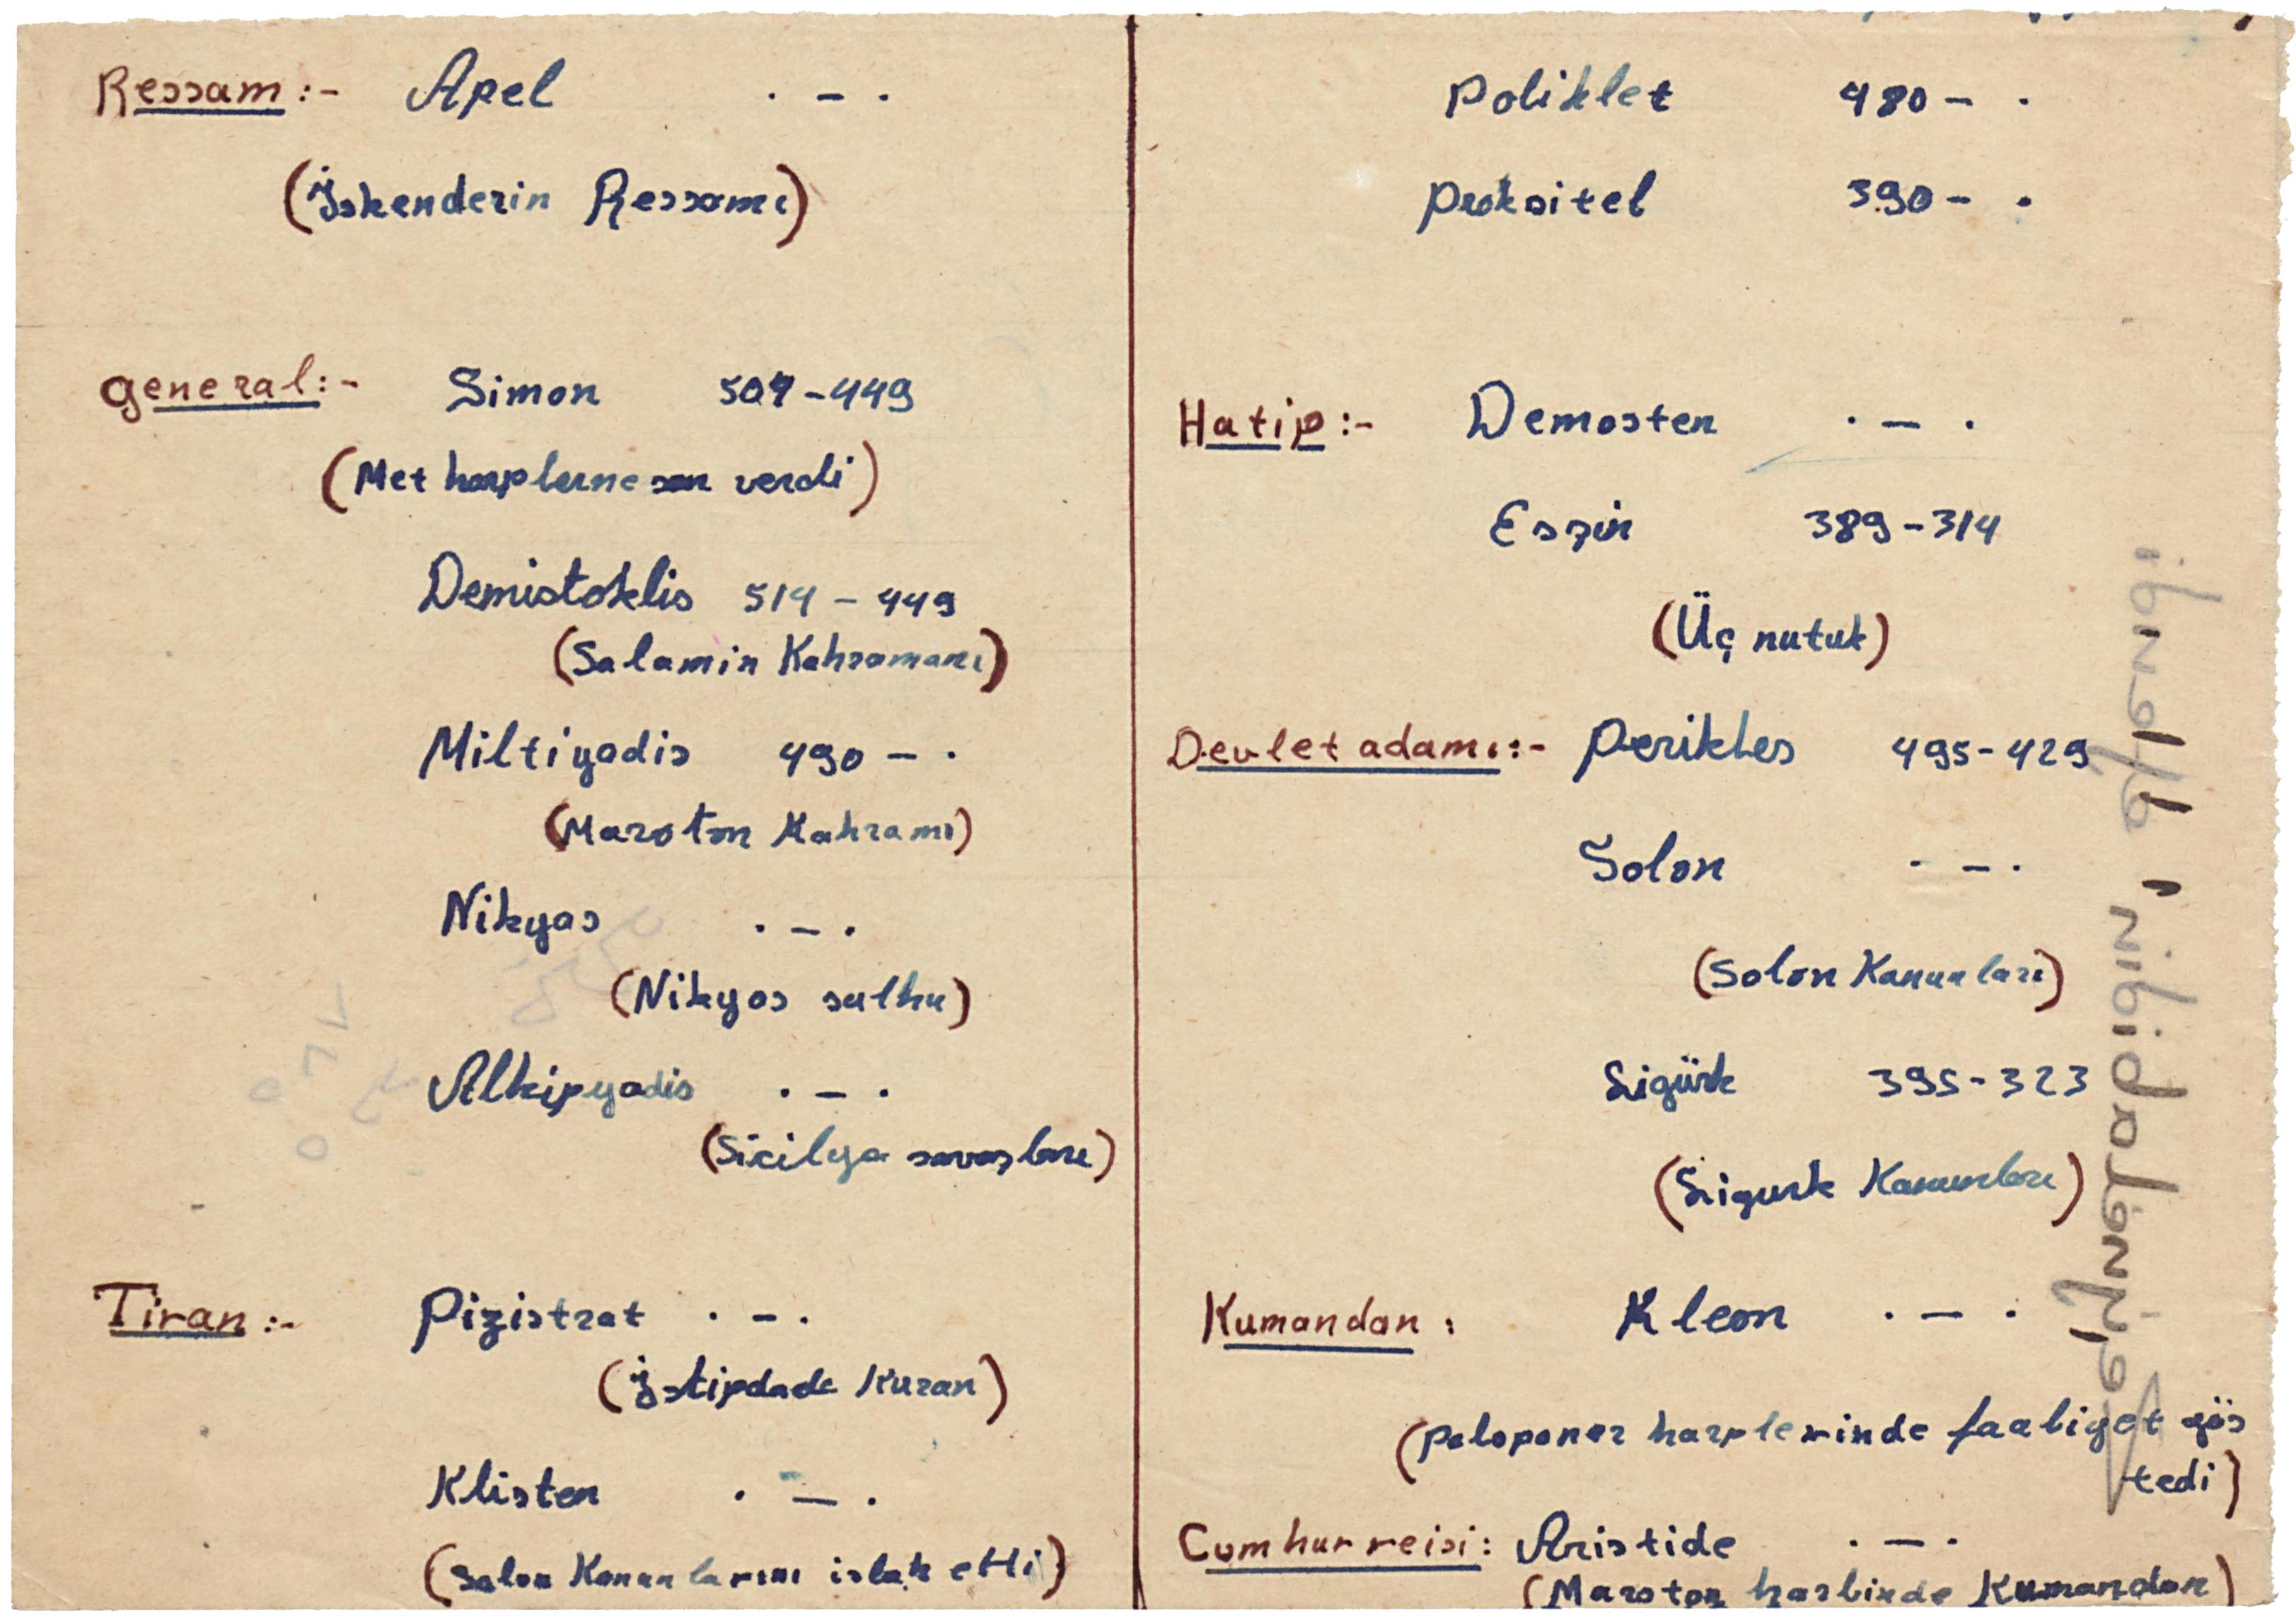 Ressam :- Apel . - .
(İskenderin Ressamı)
General :- Simon 507-449
(Met harplerine son verdi)
Demistoklis 514 - 449
(Salamin Kahramanı)
Miltiyadis 490 - .
(Maroton Kahramı)
Nikyas . - .
(Nikyas sulhu)
Alkipyadis . - .
(Sicilya savaşları)
Tiran :- Pizistrat . - .
(İstipdadı Kuran)
Klisten . - .
(Solon Kanunlarını islah etti)
Poliklet 480 - .
Praksitel 390 - .
Hatip :- Demosten . - .
Eszin 389-314
(Üç nutuk)
Devlet adamı :- Perikles 495-429
Solon . - .
(Solon Kanunları)
Ligürk 395-323
(Ligurk Kanunları)
Kumandan : Kleon . - .
(Peloponez harplerinde faaliyet gös
tedi)
Cumhurreisi : Aristide . - .
(Maroton harbinde Kumandan)